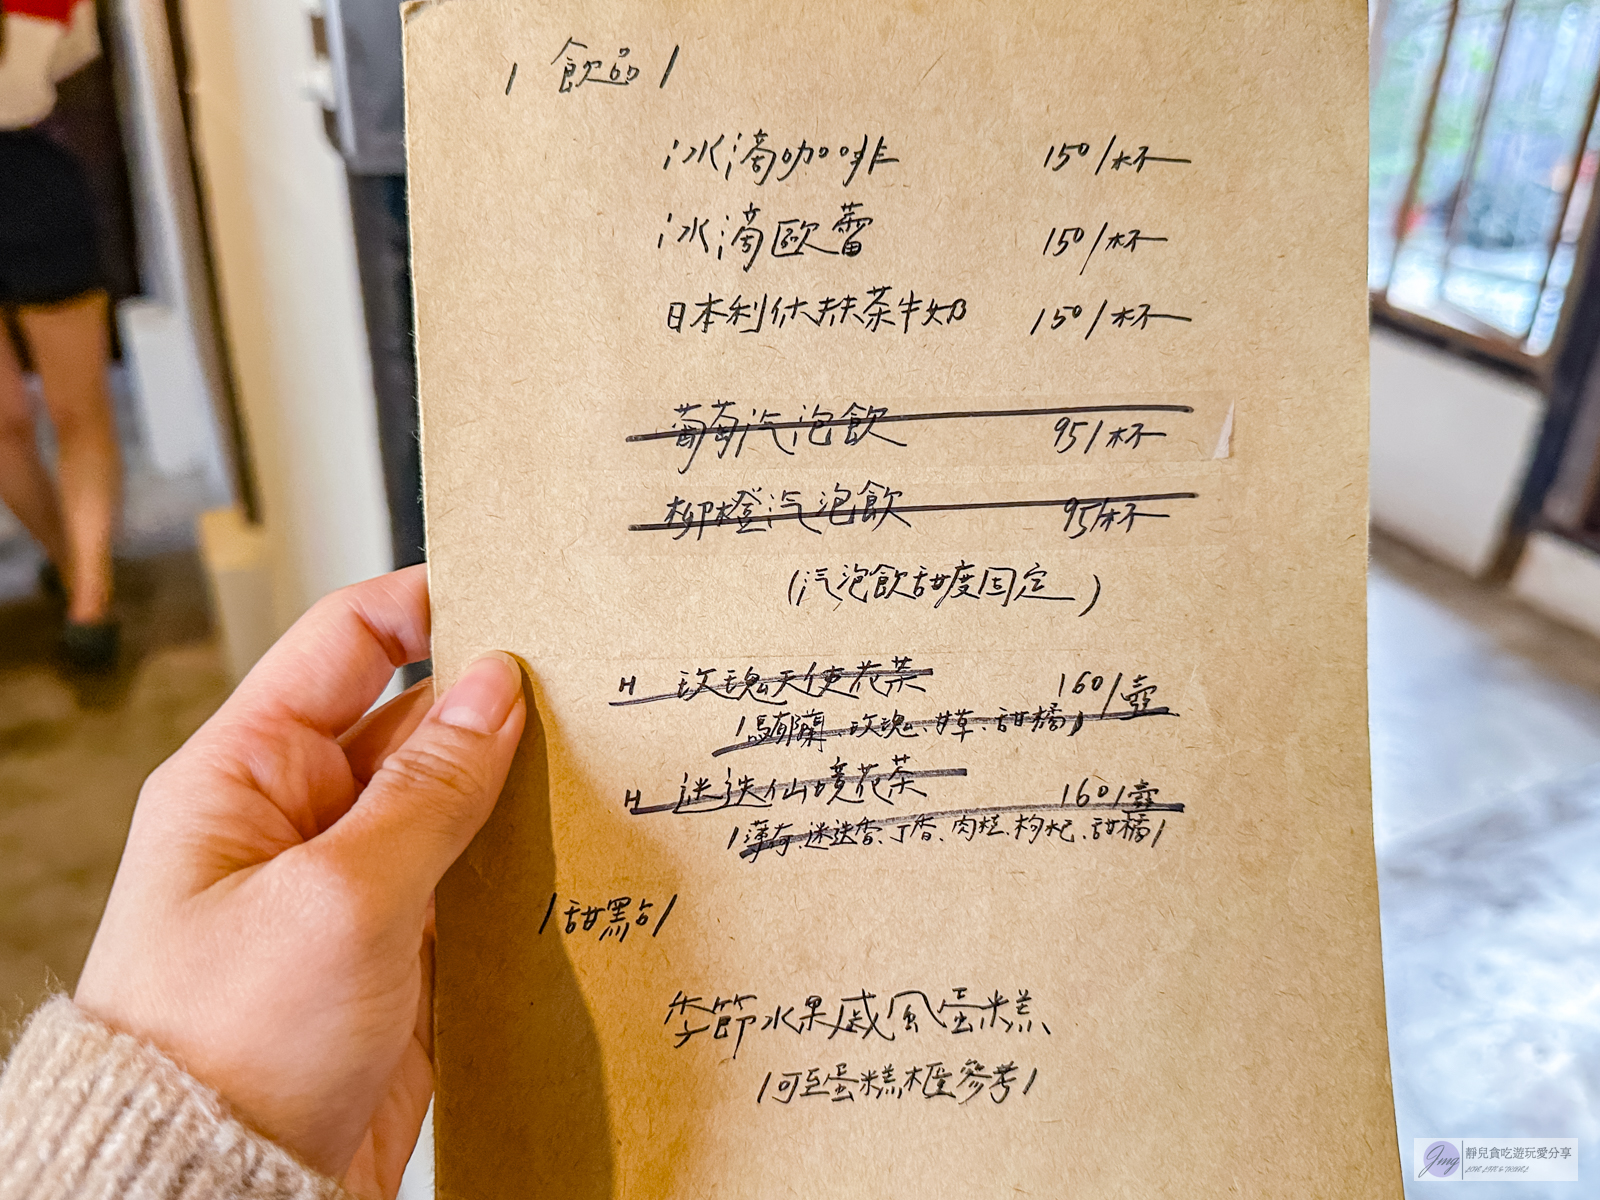 / 飲品 /
冰滴咖啡 150/杯
冰滴歐蕾 150/杯
日本利休抹茶牛奶 150/杯
葡萄汽泡飲 95/杯
柳橙汽泡飲 95/杯
(汽泡飲甜度固定)
H 玫瑰天使花茶 160/壺
/馬郁蘭、玫瑰、甘草、甜橘/
H 迷迭仙境花茶 160/壺
/薄荷、迷迭香、丁香、肉桂、枸杞、甜橘/
/甜點/
季節水果戚風蛋糕
/可至蛋糕櫃參考/
Jing 靜兒貪吃遊玩愛分享